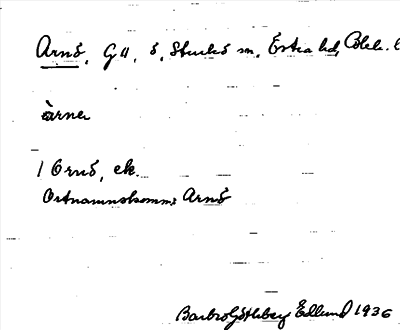 Arnö, G 4, ö, Sturkö sn, Östra hd, Blek. l
àrnœ
1 Ornö, ek.
Ortnamnskomm: Arnö
Barbro Götlberg Edlund 1936